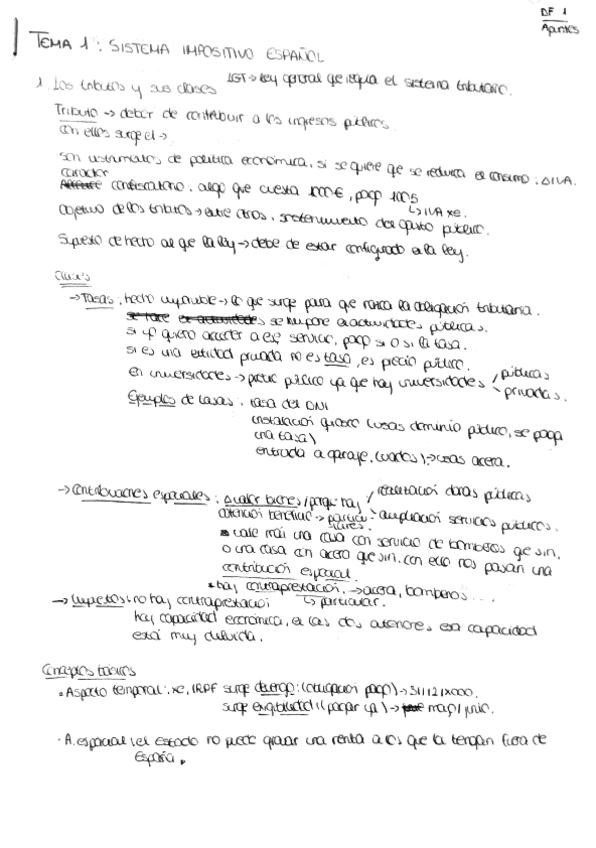 DF 1
Apuntes
TEMA 1: SISTEMA IMPOSITIVO ESPAÑOL
1. Los tributos y sus clases LGT → Ley general que regula el sistema tributario.
Tributo → deber de contribuir a los ingresos públicos
con ellos surge el →
son instrumentos de política económica, si se quiere que se reduzca el consumo: ΔIVA.
carácter
confiscatorio: algo que cuesta 1000€, pago 1005
↳ IVA xe.
Objetivo de los tributos → entre otros, sostenimiento del gasto público.
Supuesto de hecho al que la ley → debe de estar configurado en la ley.
Clases
→ Tasas: hecho imponible → lo que surge para que nazca la obligación tributaria.
se impone en actividades públicas.
si yo quiero acceder a ese servicio, pago si o si la tasa.
si es una entidad privada no es tasa, es precio público.
en universidades → precio público ya que hay universidades públicas
privadas.
Ejemplos de tasas: tasa del DNI
instalación quiosco (usas dominio público, se paga
una tasa)
entrada a garaje. (vados) → usas acera.
→ Contribuciones especiales: valor bienes / porque hay realización obras públicas
obtención beneficio → particulares ampliación servicios públicos.
vale más una casa con servicio de bomberos que sin,
o una casa con acera que sin. con ello nos pasan una
contribución especial.
• hay contraprestación. → acera, bomberos...
→ Impuestos: no hay contraprestación ↳ particular.
hay capacidad económica, en las dos anteriores esa capacidad
está muy diluida.
Conceptos básicos
• Aspecto temporal: xe, IRPF surge devengo: (obligación pago) → 31/12/X000.
surge exigibilidad (pagar ya) → mayo/junio.
• A. espacial: el estado no puede gravar una renta a los que la tengan fuera de
España.